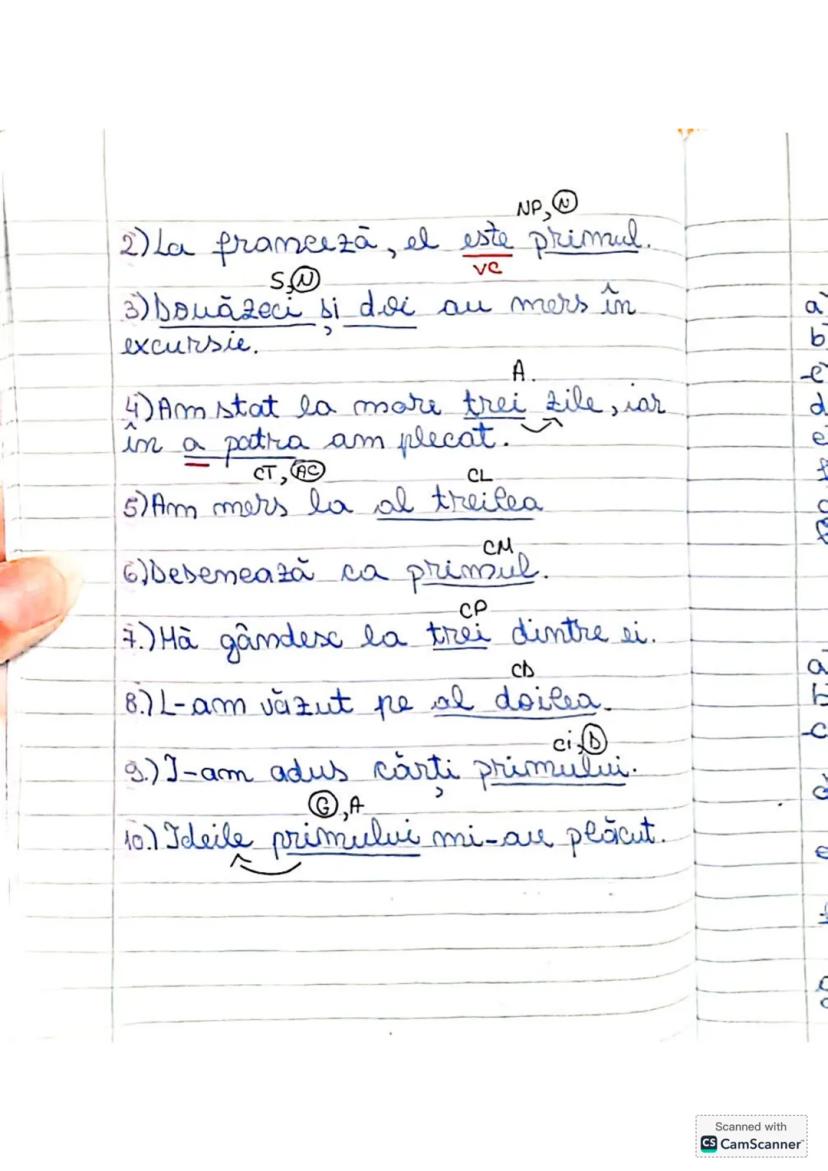 NP, N
2) La franceză, el este primul.
vc
S, N
3) Douăzeci și doi au mers în
excursie.
A.
4) Am stat la mare trei zile, iar
în a patra am plecat.
CT, AC
CL
5) Am mers la al treilea
CM
6) Desenează ca primul.
CP
7.) Mă gândesc la trei dintre ei.
CD
8.) L-am văzut pe al doilea.
ci, D
9.) I-am adus cărți primului.
G, A
10.) Ideile primului mi-au plăcut.
a
b
c
d
e
f
a
b
c
d
e
f
Scanned with
CS CamScanner